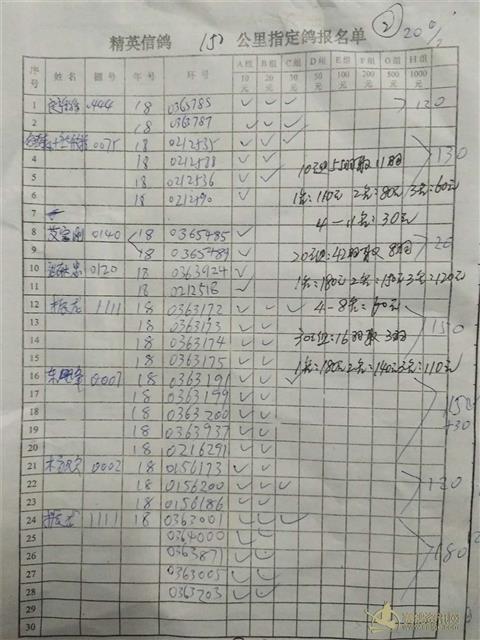 ② 20%
精英信鸽 150 公里指定鸽报名单
序号 姓名 圈号 年号 环号 A组10元 B组20元 C组30元 D组50元 E组100元 F组200元 G组500元 H组1000元
1 0444 18 0363785 ✓ ✓ ✓ 120
2 18 0363787 ✓ ✓ ✓
3 0075 18 0212535 ✓ ✓ 130
4 18 0212588 ✓ ✓
5 18 0212536 ✓ ✓
10元组55羽取11羽
6 18 0212590 ✓
1名:110元 2名:80元 3名:60元
7
4-11名:30元
8 0140 18 0365485 ✓
20元组:42羽取8羽 20
9 18 0365489 ✓
10 0120 18 0363924 ✓
1名:180元 2名:150元 3名:120元
11 18 0212518 ✓
12 1111 18 0363172 ✓ ✓ ✓
4-8名:60元
13 18 0363173 ✓ ✓ 150
14 18 0363174 ✓ ✓
30元组:16羽取3羽
15 18 0363175 ✓ ✓
1名:180元 2名:140元 3名:110元
16 0007 18 0363191 ✓ ✓ ✓
17 18 0363199 ✓ ✓
18 18 0363200 ✓ ✓ 150
19 18 0363937 ✓ ✓ +30
20 18 0216291 ✓ ✓
21 0002 18 0156173 ✓ ✓
22 18 0156200 ✓ ✓ ✓ 120
23 18 0156186 ✓ ✓
24 1111 18 0363001 ✓ ✓ ✓
25 0364000 ✓ ✓
26 0363871 ✓ ✓ 180
27 0363005 ✓ ✓
28 0363203 ✓ ✓
29
30